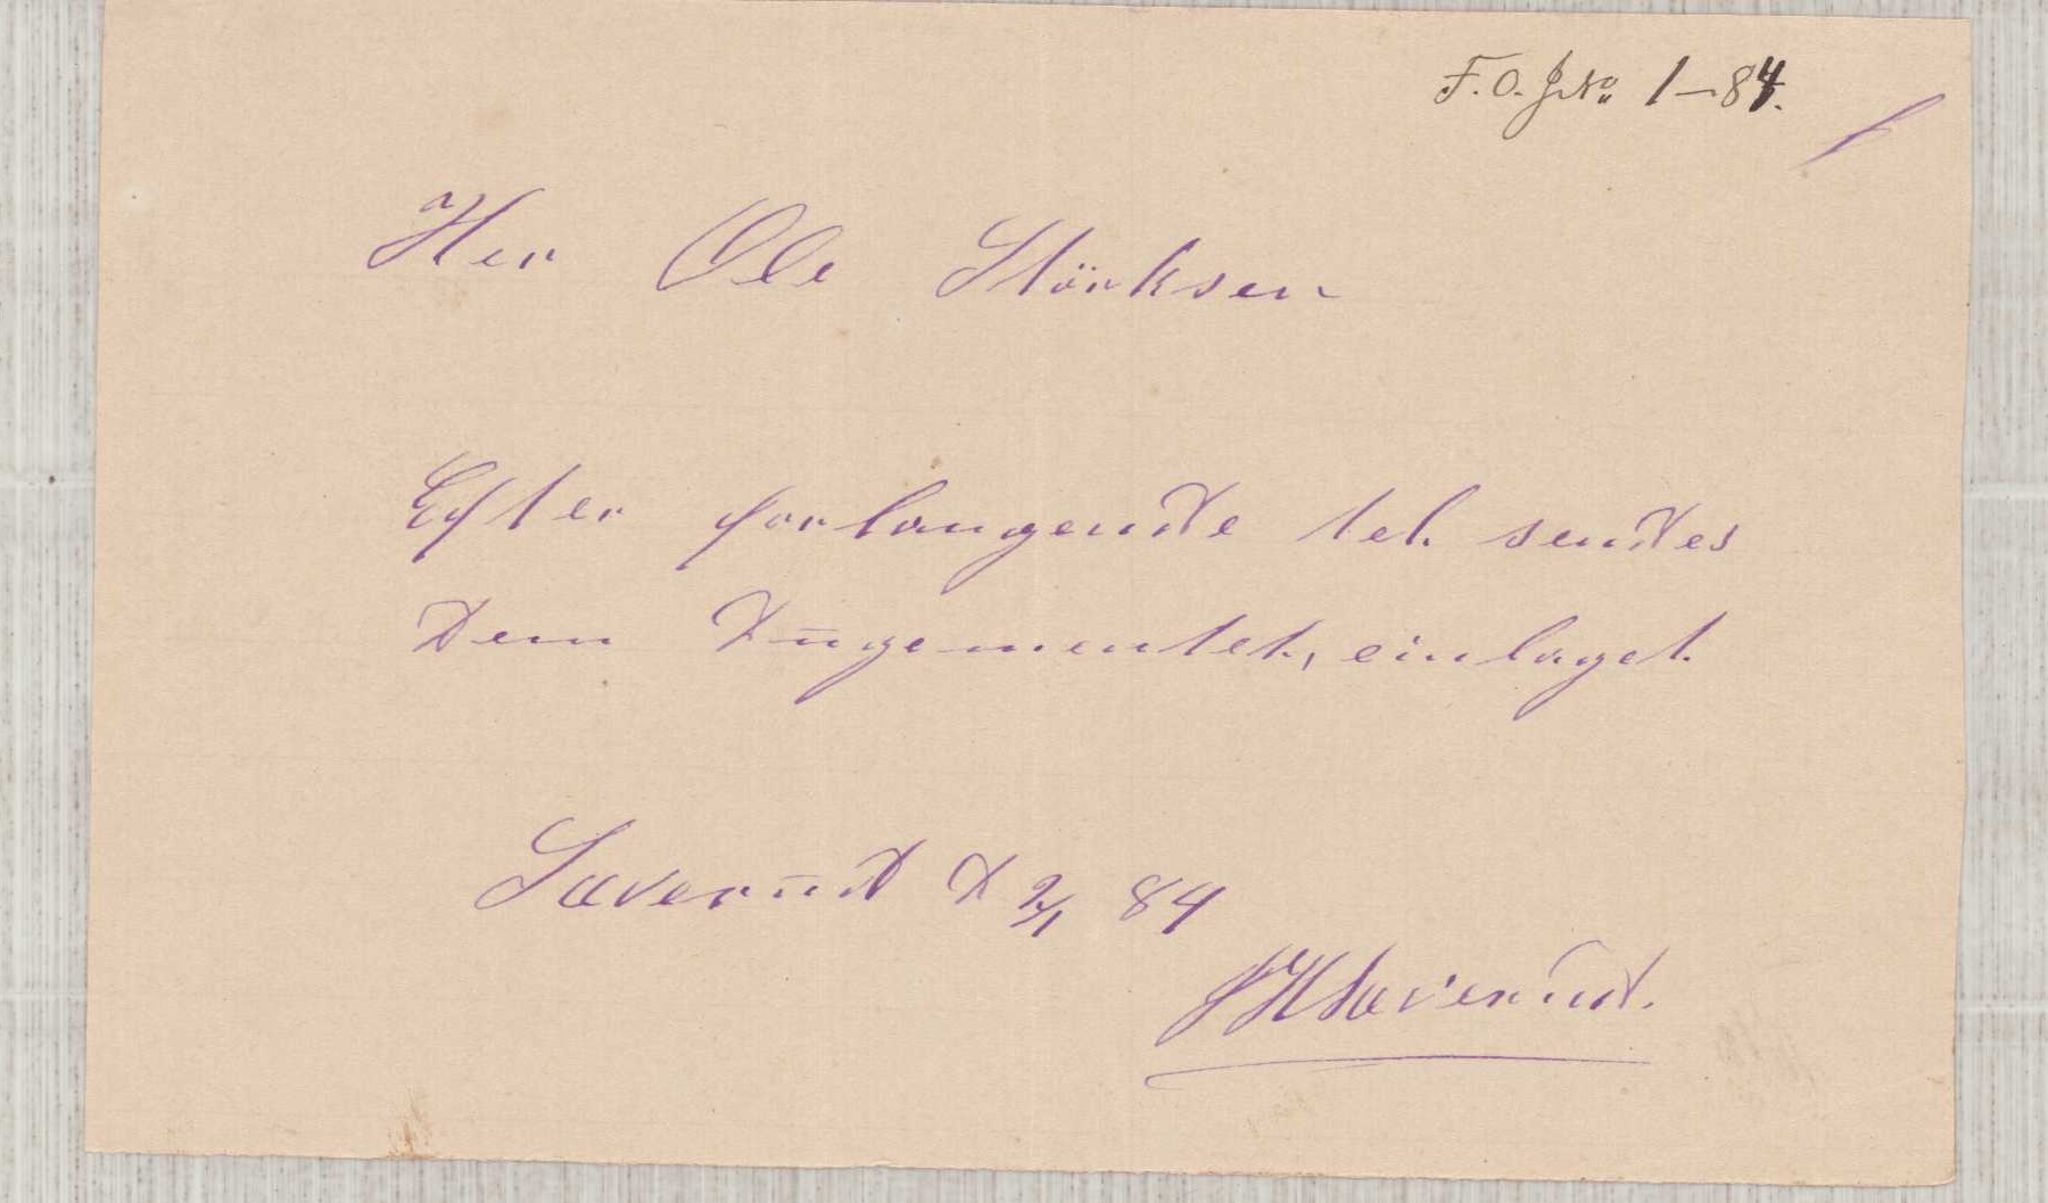 F. O. J No 1-84.
Her Ole Störksen
Efter forlangende tel. sendes
Dem Dŭgementet, einlaget.
Sæverŭd d 2/1 84
Sæverŭd.